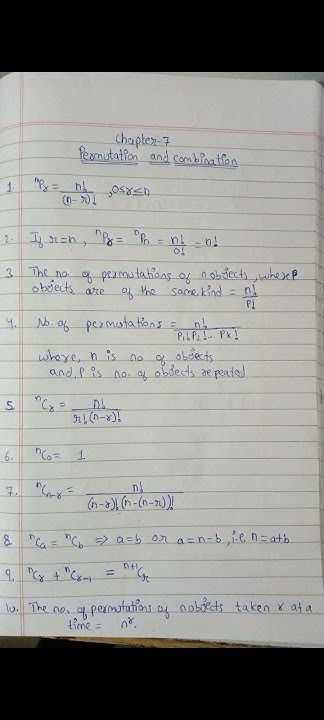 Chapter-7
Permutation and combination
1. ⁿPᵣ = n!/(n-r)! , 0≤r≤n
2. If r=n, ⁿPᵣ = ⁿPₙ = n!/0! = n!
3 The no. of permutations of n objects, where p
objects are of the same kind = n!/P!
4. No. of permutations = n!/P₁!P₂!... Pₖ!
where, n is no of objects
and, P is no. of objects repeated
5. ⁿCᵣ = n!/r!(n-r)!
6. ⁿC₀ = 1
7. ⁿCₙ₋ᵣ = n!/(n-r)!(n-(n-r))!
8. ⁿCₐ = ⁿC_b ⇒ a=b or a=n-b, i.e, n=a+b
9. ⁿCᵣ + ⁿCᵣ₋₁ = ⁿ⁺¹Cᵣ
10. The no. of permutations of n objects taken r at a
time = nʳ.